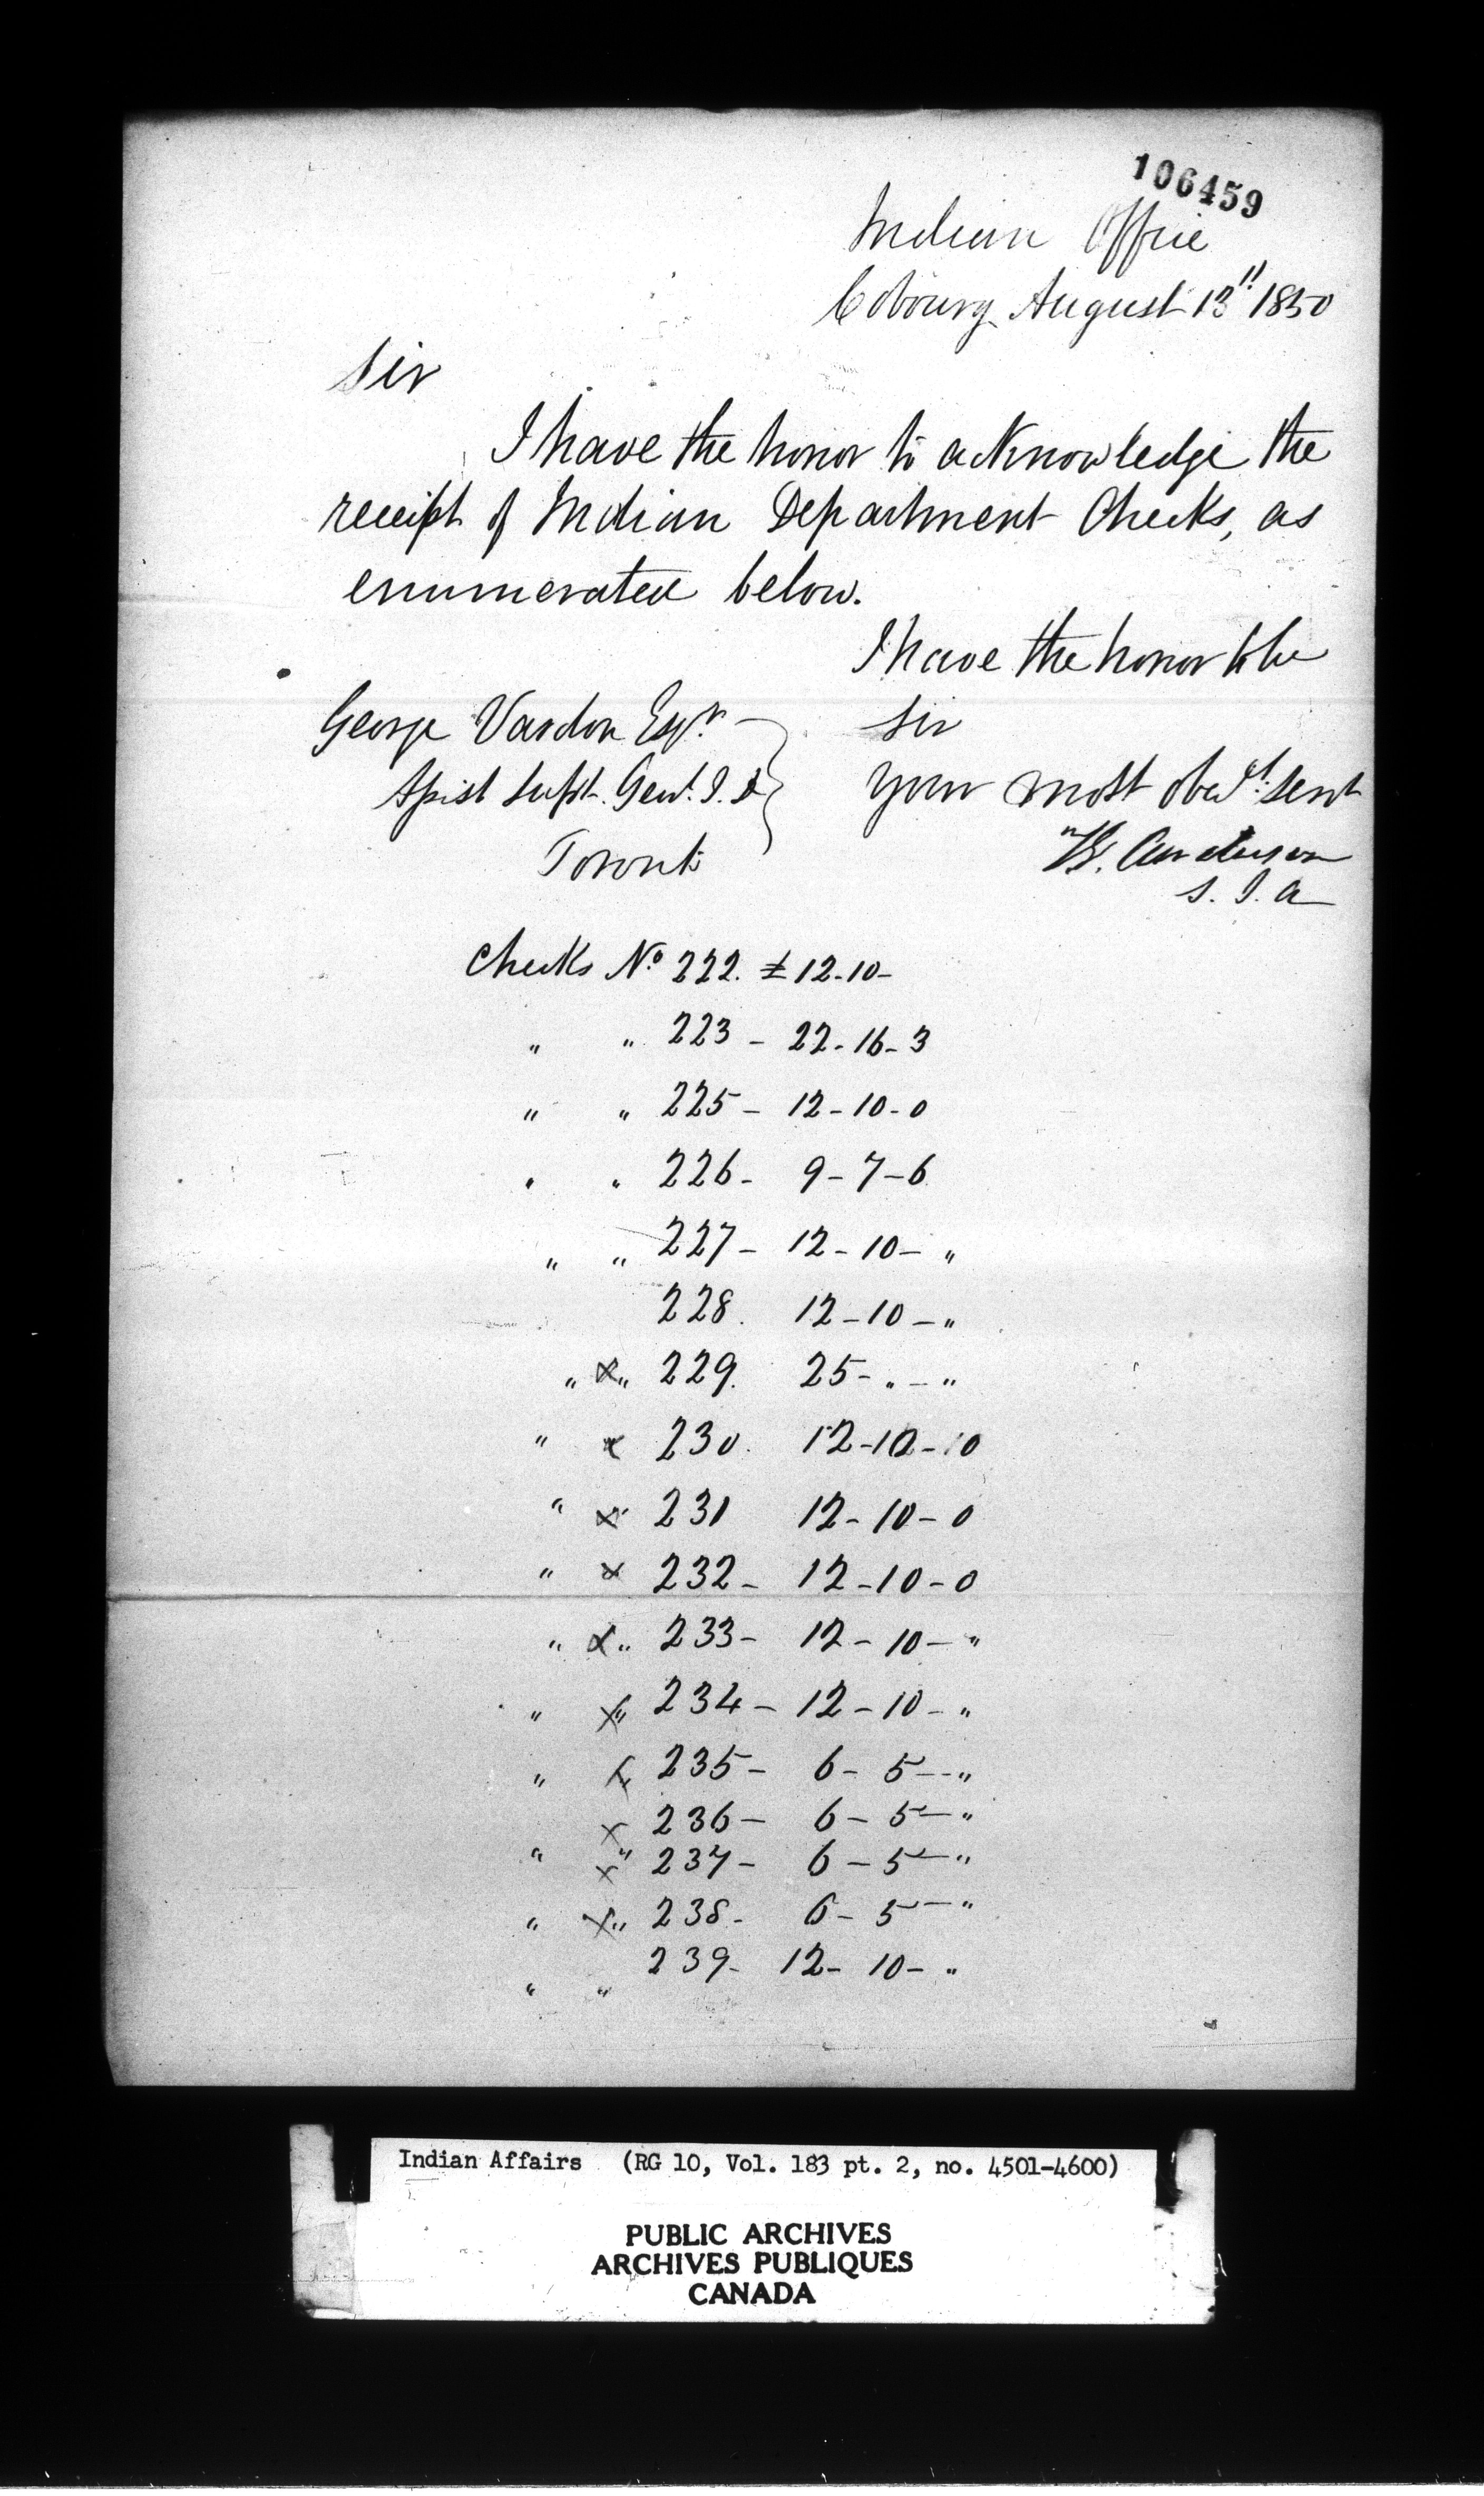 106459
Indian Office
Cobourg August 13th 1850
Sir
I have the honor to acknowledge the
receipt of Indian Department Checks, as
enumerated below.
I have the honor to be
Sir
your most obedt. Servt
George Vardon Esqr.
Assist Supt. Genl. I. D
Toronto
T.G. Anderson
S. I. A
Checks No. 222. £12-10-
" " 223 - 22-16-3
" " 225 - 12-10-0
" " 226 - 9-7-6
" " 227 - 12-10-"
228. 12-10-"
" x" 229. 25-"-"
" x 230. 12-10-10
" x 231 12-10-0
" x 232 - 12-10-0
" x" 233 - 12-10-"
" x" 234 - 12-10-"
" x 235 - 6-5-"
x 236 - 6-5-"
" x" 237 - 6-5-"
" x" 238 - 6-5-"
" " 239 - 12-10-"
Indian Affairs (RG 10, Vol. 183 pt. 2, no. 4501-4600)
PUBLIC ARCHIVES
ARCHIVES PUBLIQUES
CANADA